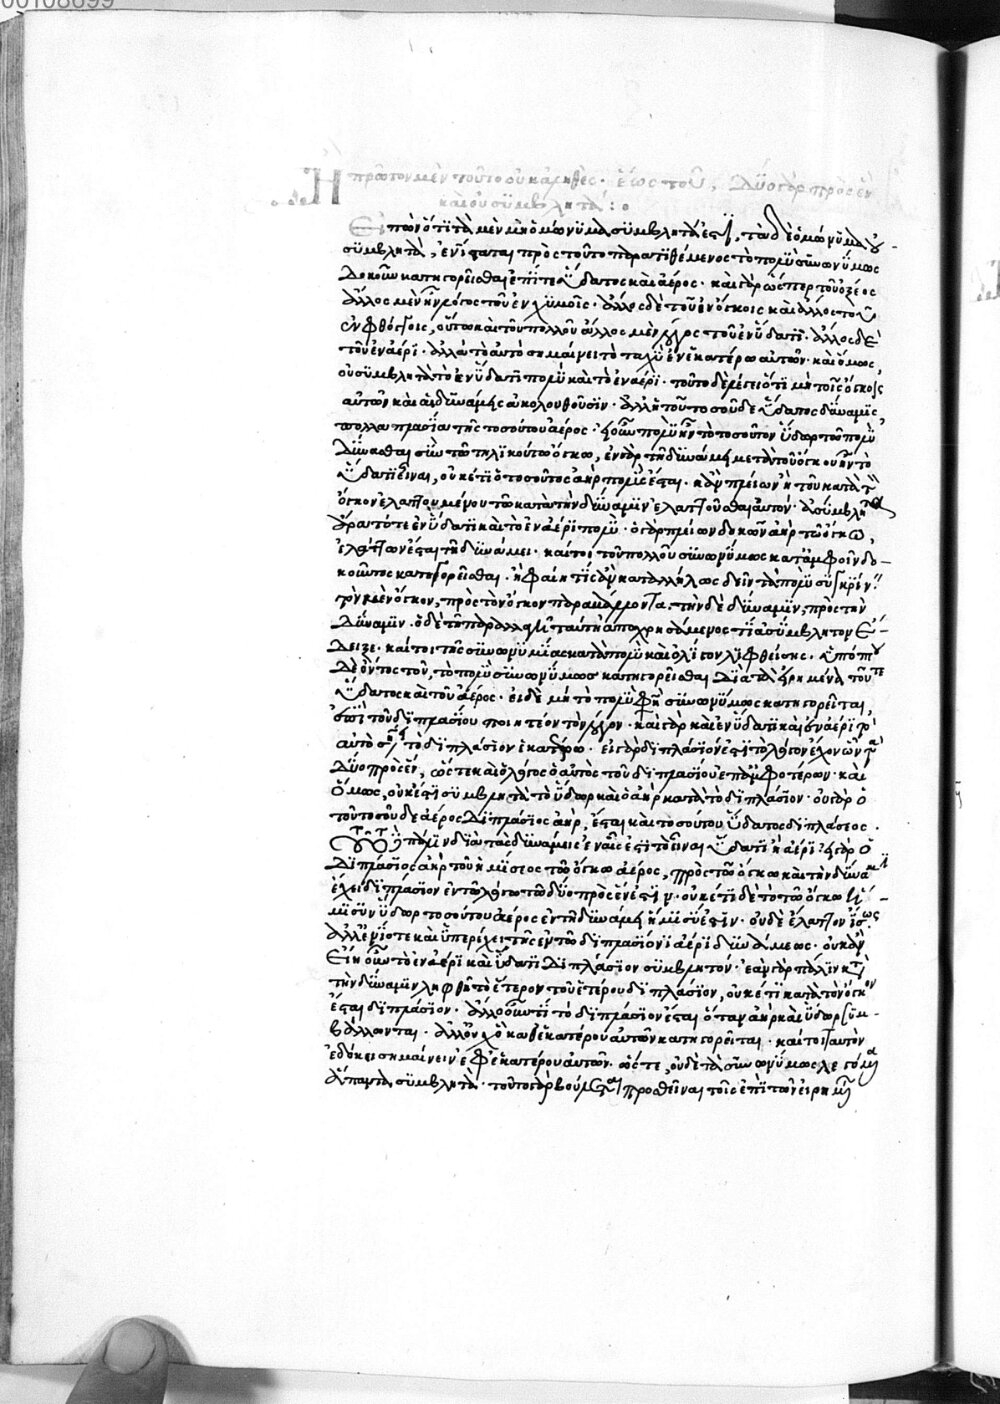 00108699
Ἢ πρῶτον μὲν τοῦτο οὐκ ἀληθές· ἕως τοῦ, δύο γὰρ πρὸς ἓν
καὶ οὐ συμβλητά:
Εἰπὼν ὅτι τὰ μὲν μὴ ὁμώνυμα συμβλητά ἐστι, τὰ δὲ ὁμώνυμα οὐ
συμβλητά, ἐνίσταται πρὸς τοῦτο παρατιθέμενος τὸ πολὺ συνωνύμως
δοκοῦν κατηγορεῖσθαι ἐπί τε ὕδατος καὶ ἀέρος· καὶ γὰρ ὥσπερ τοῦ ὀξέος
ἄλλος μὲν ἦν λόγος τοῦ ἐν χυμοῖς· ἄλλος δὲ τοῦ ἐν ὄγκοις καὶ ἄλλος τοῦ
ἐν φθόγγοις, οὕτω καὶ τοῦ πολλοῦ ἄλλος μὲν λόγος τοῦ ἐν ὕδατι· ἄλλος δὲ
τοῦ ἐν ἀέρι· ἀλλὰ τὸ αὐτὸ σημαίνει τὸ πολὺ ἐν ἑκατέρω αὐτῶν· καὶ ὅμως,
οὐ συμβλητὰ τὸ ἐν ὕδατι πολὺ καὶ τὸ ἐν ἀέρι· τοῦτο δὲ λέγει ὅτι μὴ τοῖς ὄγκοις
αὐτῶν καὶ αἱ δυνάμεις ἀκολουθοῦσιν· ἀλλ' ἡ τοῦ τοσοῦδε ὕδατος δύναμις,
πολλαπλασία τῆς τοσούτου ἀέρος·
δύνασθαι σὺν τῶ τηλικούτω ὄγκω, ἐν γὰρ τῆ δυνάμει μετὰ τοῦ ὄγκου ἦν τὸ
ὕδατι εἶναι, οὐκέτι ὁ τοσοῦτος ἀὴρ πολὺς ἔσται· κἂν πλείων ἦ τοῦ κατὰ
ὄγκον ἐλαττουμένου τῶ κατὰ τὴν δύναμιν ἐλαττοῦσθαι αὐτόν· ἀσύμβλητα
ἄρα τό τε ἐν ὕδατι καὶ τὸ ἐν ἀέρι πολύ· ὁ γὰρ πλείων δοκῶν ἀὴρ τῶ ὄγκω,
ἐλάττων ἔσται τῆ δυνάμει· καίτοι τοῦ πολλοῦ συνωνύμως κατ' ἀμφοῖν δο-
κοῦντος κατηγορεῖσθαι· ἢ φαίη τὶς ἂν καταλλήλως δεῖν τὰ πολὺ συγκρίνειν
τὸν μὲν ὄγκον, πρὸς τὸν ὄγκον παραβάλλοντα, τὴν δὲ δύναμιν, πρὸς τὴν
δύναμιν· ὁ δὲ τῆ παραλλαγῆ ταύτη ἀποχρησάμενος τὸ ἀσύμβλητον ἔ-
δειξε· καίτοι τῆς συνωνυμίας κατὰ πολὺ καὶ ὀλίγον ληφθείσης·
δέοντος τοῦ, τὸ πολὺ συνωνύμως κατηγορεῖσθαι διὰ τὰ εἰρημένα τοῦ τε
ὕδατος καὶ τοῦ ἀέρος· εἰ δὲ μὴ τὸ πολὺ φῆ συνωνύμως κατηγορεῖσθαι,
ἐπὶ τοῦ διπλασίου ποιητέον τὸν λόγον· καὶ γὰρ καὶ ἐν ὕδατι καὶ ἐν ἀέρι τὸ
αὐτὸ τὸ διπλάσιον ἑκατέρω· εἰ γὰρ διπλάσιόν ἐστι τὸ λόγον ἔχον ὃν τὰ
δύο πρὸς ἕν, ὥστε καὶ ὁ λόγος ὁ αὐτὸς τοῦ διπλασίου ἐπ' ἀμφοτέρων· καὶ
ὅμως, οὐκ ἔστι συμβλητὰ τὸ ὕδωρ καὶ ὁ ἀὴρ κατὰ τὸ διπλάσιον· οὐ γὰρ ὁ
τοῦ τοσοῦδε ἀέρος διπλάσιος ἀὴρ, ἔσται καὶ τοσούτου ὕδατος διπλάσιος·
πάλιν διὰ τὰς δυνάμεις ἐν αἷς ἐστὶ τὸ εἶναι ὕδατι ἢ ἀέρι ὁ γὰρ ὁ
διπλάσιος ἀὴρ τοῦ ἡμίσεος τῶ ὄγκω ἀέρος, πρὸς τῶ ὄγκω καὶ τὴν δύναμιν
ἔχει διπλάσιον ἐν τῶ λόγω τῶ δύο πρὸς ἕν ἐστιν· οὐκέτι δὲ τὸ τῶ ὄγκω ἥ-
μισυ ὕδωρ τοσούτου ἀέρος ἐν τῆ δυνάμει ἥμισύ ἐστιν· οὐδὲ ἔλαττον ἴσως
ἀλλ' ἐνίοτε καὶ ὑπερέχει τῆς ἐν τῶ διπλασίονι ἀέρι δυνάμεως· οὐκ ἂν
εἴη οὖν τὸ ἐν ἀέρι καὶ ὕδατι διπλάσιον συμβλητόν· ἐὰν γὰρ πάλιν κατὰ
τὴν δύναμιν ληφθῆ τὸ ἕτερον τοῦ ἑτέρου διπλάσιον, οὐκέτι κατὰ τὸν ὄγκον
ἔσται διπλάσιον· ἄλλο οὖν τι τὸ διπλάσιον ἔσται ὅταν ἀὴρ καὶ ὕδωρ συμ-
βάλλωνται· ἀλλ' οὐχ ὃ καθ' ἑκατέρου αὐτῶν κατηγορεῖται· καίτοι ταὐτὸν
ἐδόκει σημαίνειν ἐφ' ἑκατέρου αὐτῶν· ὥστε, οὐδὲ τὰ συνωνύμως λεγόμενα
ἅπαντα συμβλητά· τοῦτο γὰρ βούλεται προσθεῖναι τοῖς ἐπὶ τῶν εἰρημένων